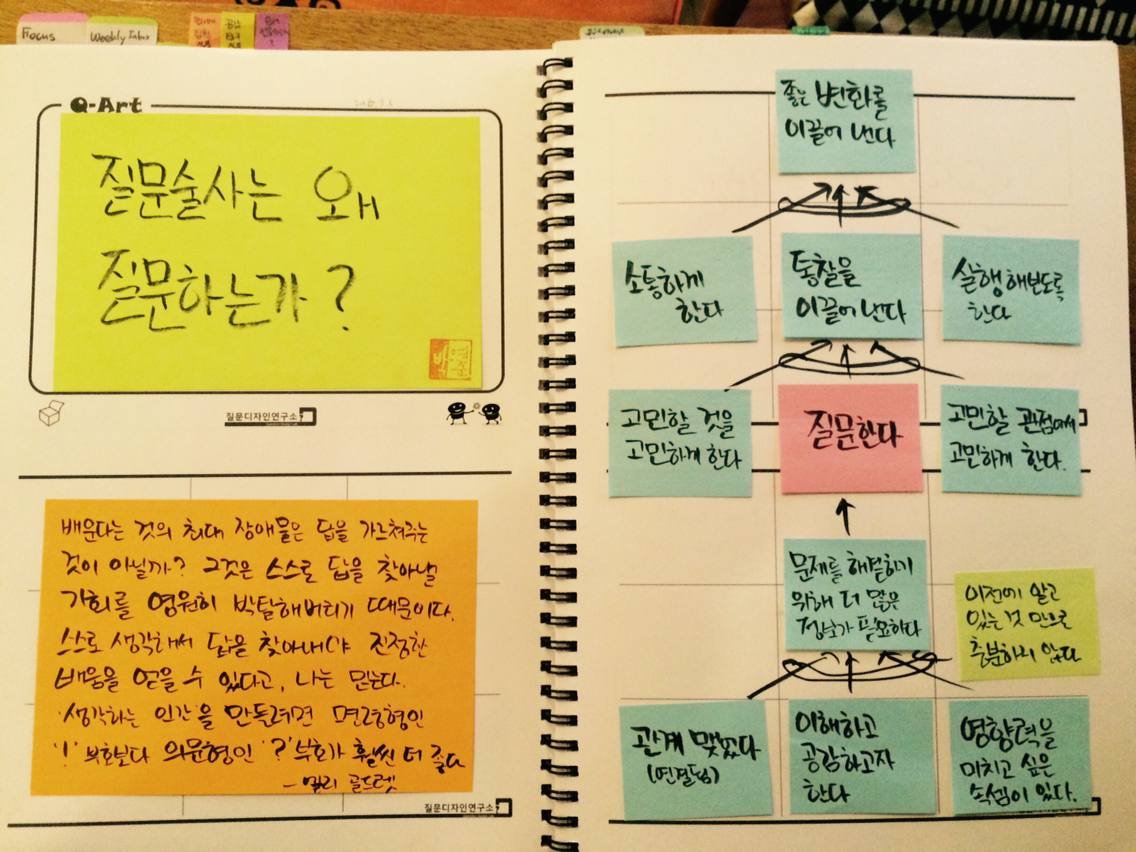 Focus
Weekly Inbox
Q-Art
질문술사는 왜
질문하는가?
질문디자인연구소
배운다는 것의 최대 장애물은 답을 가르쳐주는
것이 아닐까? 그것은 스스로 답을 찾아낼
기회를 영원히 박탈해버리기 때문이다.
스스로 생각해서 답을 찾아내야 진정한
배움을 얻을 수 있다고, 나는 믿는다.
'생각하는 인간'을 만들려면 명령형인
'!' 부호보다 의문형인 '?'부호가 훨씬 더 좋다
- 엘리 골드렛
질문디자인연구소
좋은 변화를
이끌어 낸다
소통하게
한다
통찰을
이끌어 낸다
실행해보도록
한다
고민할 것을
고민하게 한다
질문한다
고민할 관점에서
고민하게 한다.
문제를 해결하기
위해 더 많은
정보가 필요하다
이전에 알고
있는 것 만으로
충분하지 않다
관계 맺었다
(연결됨)
이해하고
공감하고자
한다
영향력을
미치고 싶은
속셈이 있다.